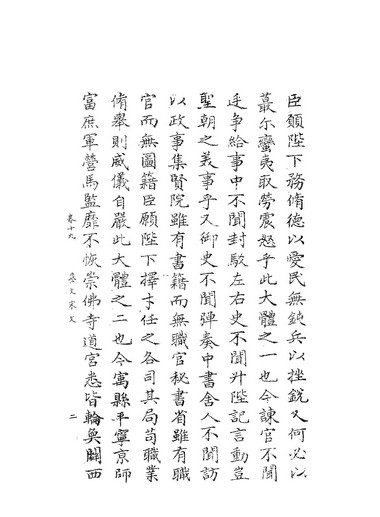 臣願陛下務脩德以愛民無鈍兵以挫銳又何必以
蕞尔蠻夷取勞震怒乎此大體之一也今諫官不聞
廷争給事中不聞封駮左右史不聞升陛記言動豈
聖朝之美事乎又御史不聞彈奏中書舍人不聞訪
以政事集賢院雖有書籍而無職官秘書省雖有職
官而無圖籍臣願陛下擇才任之各司其局苟職業
脩舉則威儀自嚴此大體之二也今寓縣平寧京師
富庶軍營馬監靡不恢崇佛寺道宮悉皆輪奐闢西
卷十九 文宋文 二